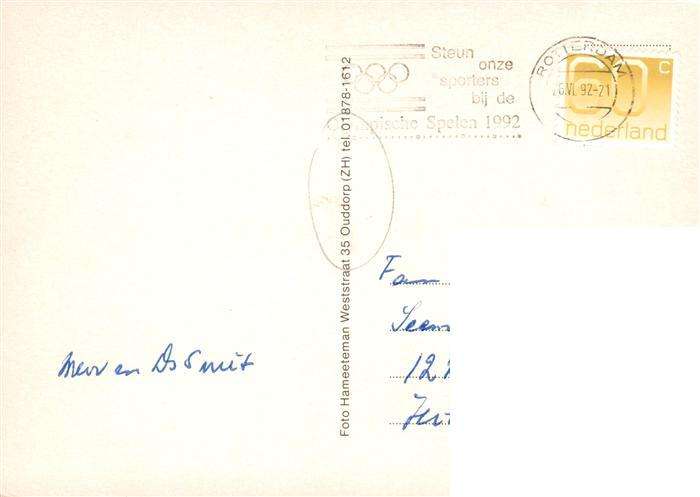 Steun
onze
sporters
bij de
Olympische Spelen 1992
ROTTERDAM
6.VI.92-21
60 c
nederland
Foto Hameeteman Weststraat 35 Ouddorp (ZH) tel. 01878-1612
Fam
en